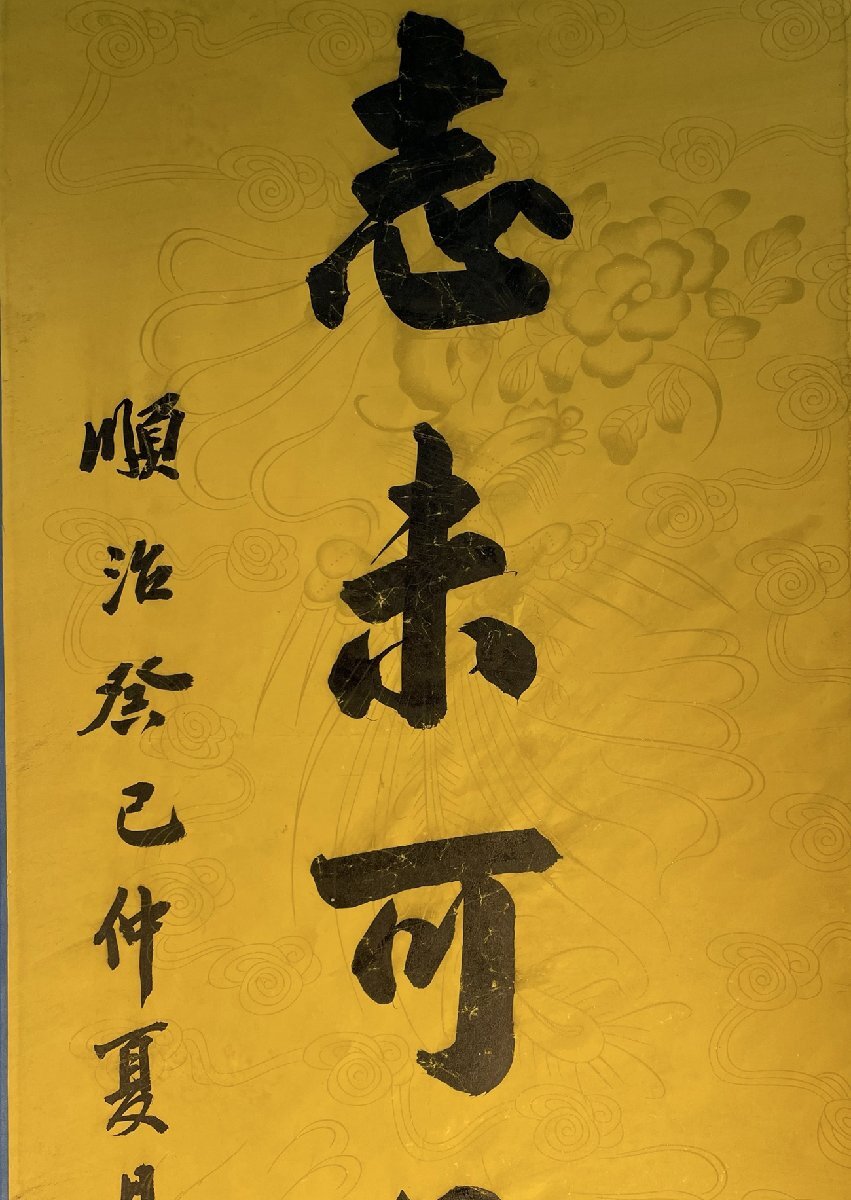 志未可
順治癸巳仲夏月